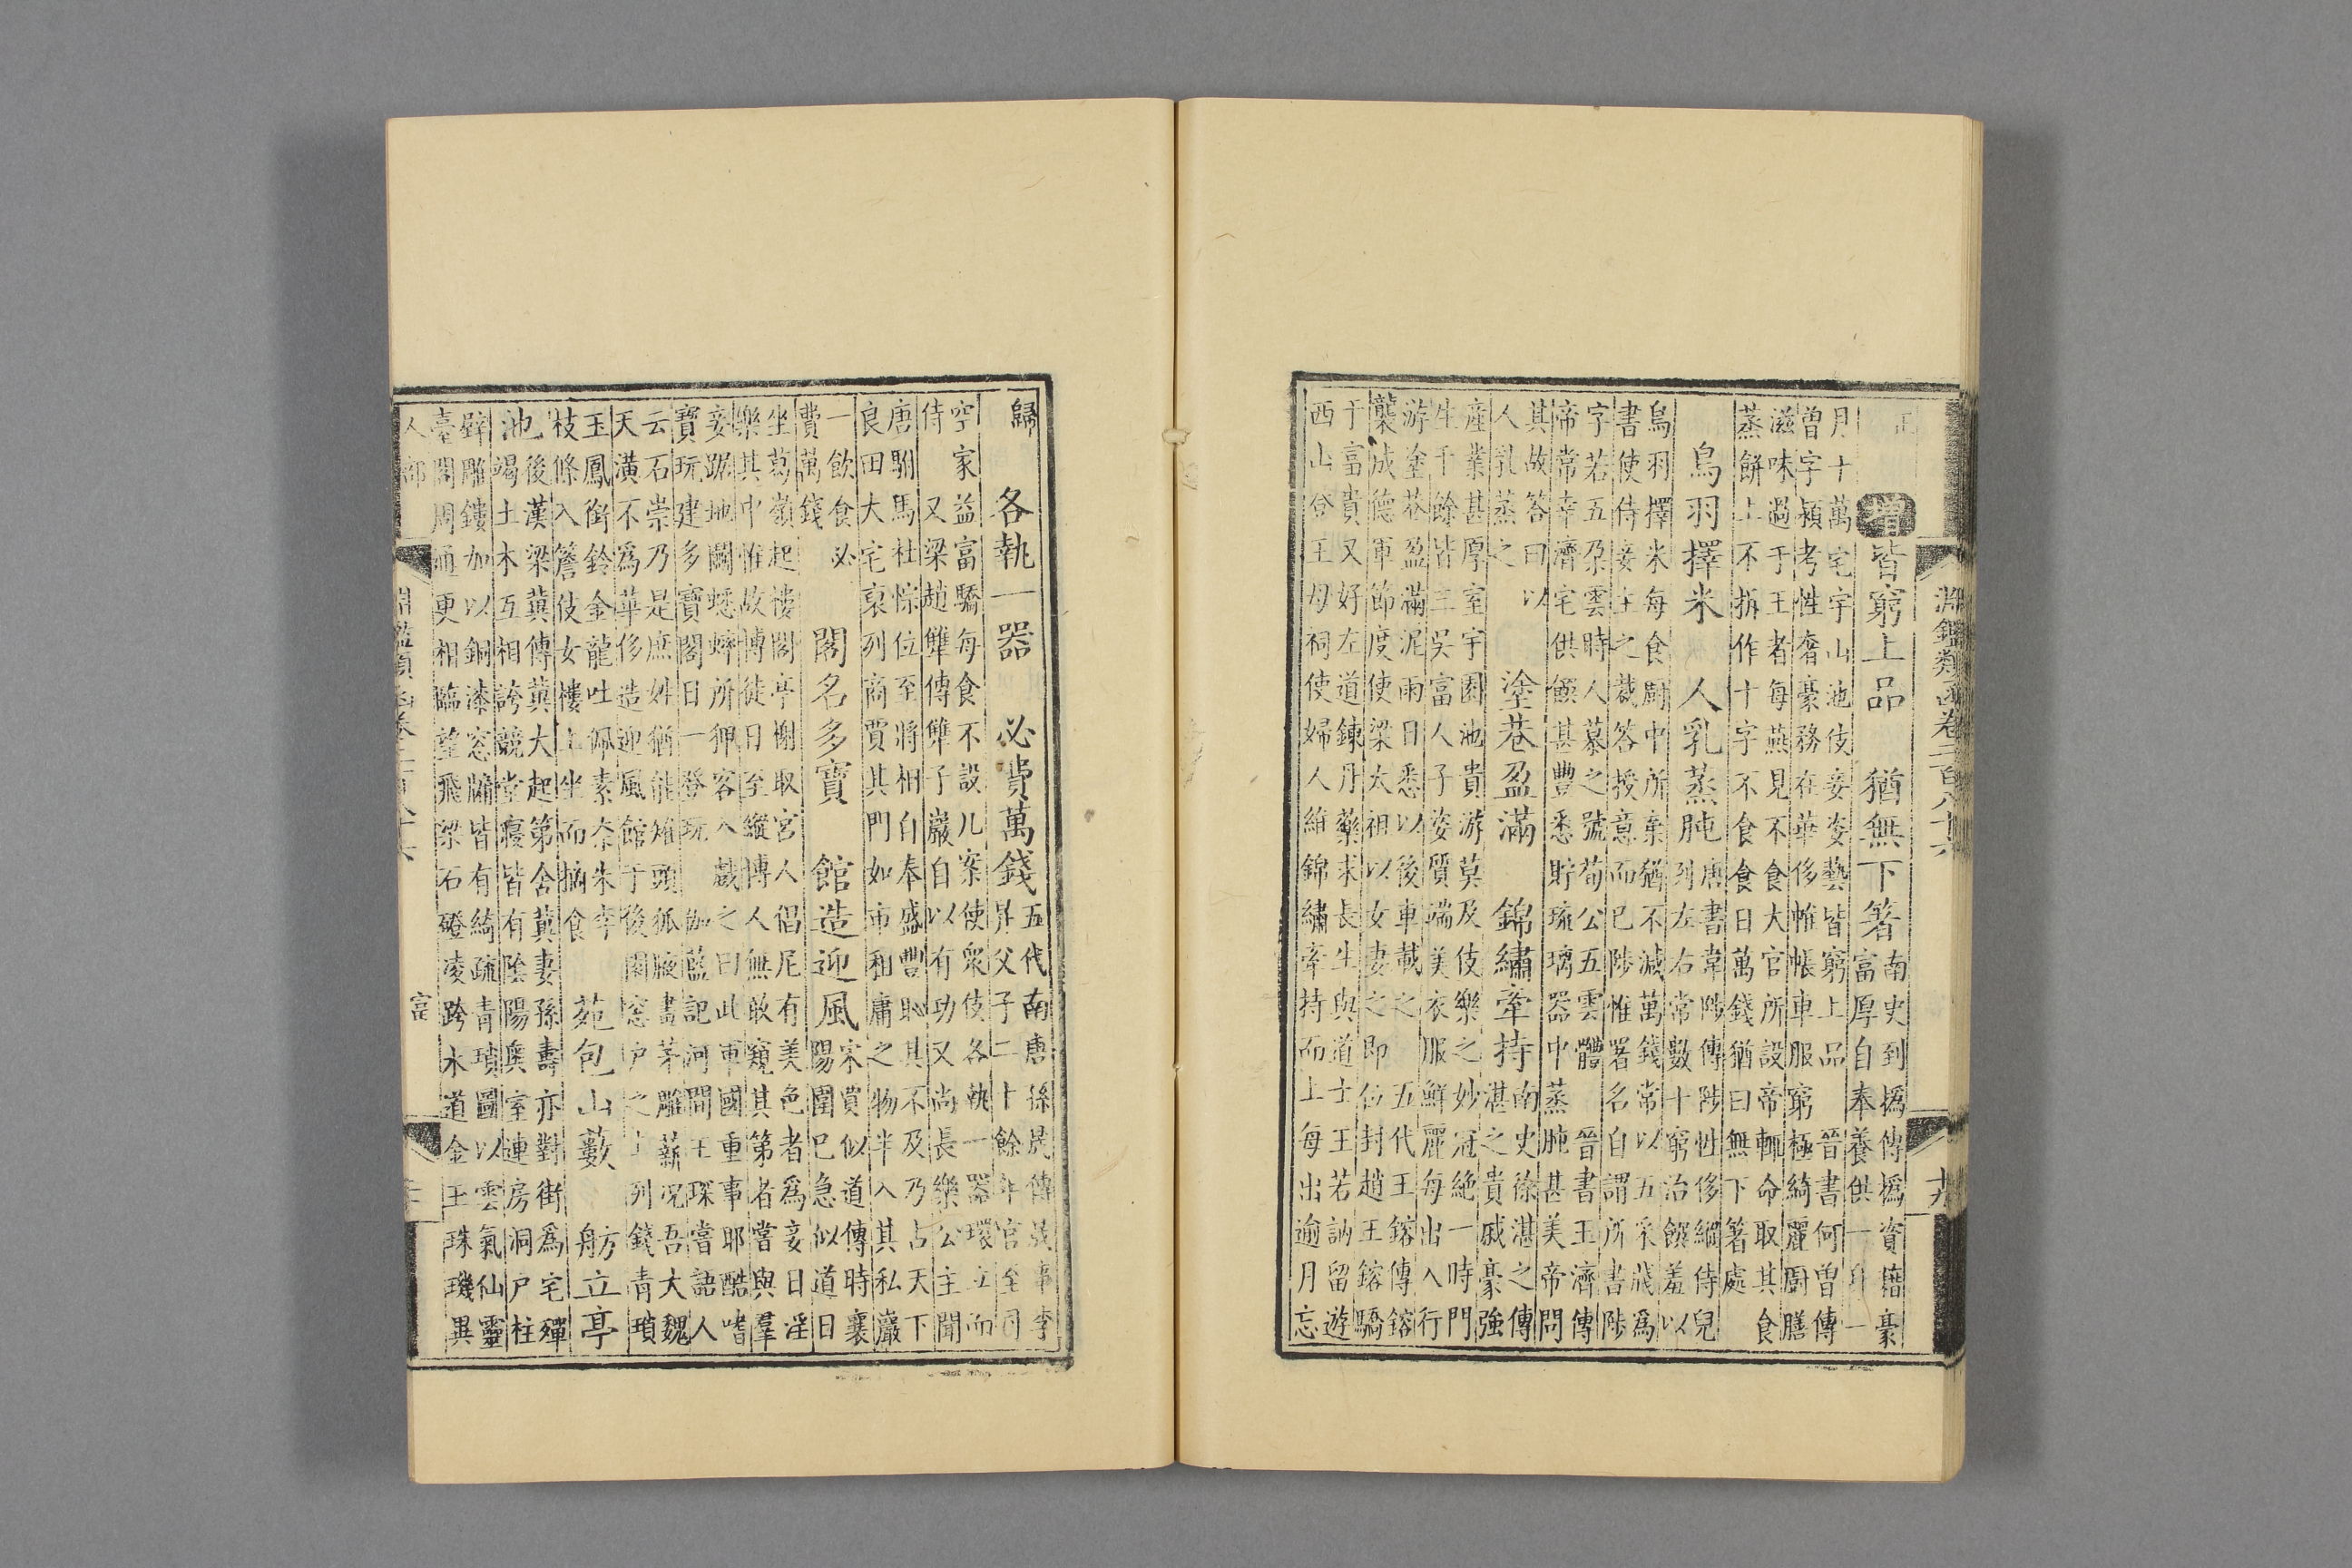 淵鑑類函卷三百八十六
增 皆窮上品 猶無下箸 南史到撝傳撝資藉豪
富厚自奉養供一身一
月十萬宅宇山池伎妾姿藝皆窮上品 晉書何曾傳
曾字穎考性奢豪務在華侈帷帳車服窮極綺麗廚膳
滋味過于王者每燕見不食大官所設帝輒命取其食
蒸餅上不拆作十字不食食日萬錢猶曰無下箸處
烏羽擇米 人乳蒸肫 唐書韋陟傳陟性侈縱侍兒
列左右常數十窮治饌羞以
烏羽擇米每食廚中所棄猶不減萬錢常以五采牋為
書使侍妾主之裁答授意而已陟惟署名自謂所書陟
字若五朶雲時人慕之號荀公五雲體 晉書王濟傳
帝常幸濟宅供饌甚豐悉貯琉璃器中蒸肫甚美帝問
其故答曰以
人乳蒸之 塗巷盈滿 錦繡牽持 南史徐湛之傳
湛之貴戚豪強
產業甚厚室宇園池貴游莫及伎樂之妙冠絶一時門
生千餘皆三吳富人子姿質端美衣服鮮麗每出入行
游塗巷盈滿泥雨日悉以後車載之 五代王鎔傳鎔
襲成德軍節度使梁太祖以女妻之即位封趙王鎔驕
于富貴又好左道鍊丹藥求長生與道士王若訥留遊
西山登王母祠使婦人維錦繡牽持而上每出逾月忘
歸 各執一器 必費萬錢 五代南唐孫晟傳晟事李
昇父子二十餘年官至司
空家益富驕每食不設几案使衆伎各執一器環立而
侍 又梁趙犨傳犨子巖自以有功又尚長樂公主聞
唐駙馬杜悰位至將相自奉盛豐恥其不及乃占天下
良田大宅裒列商賈其門如市租庸之物半入其私巖
一飲食必
費萬錢 閣名多寶 館造迎風 宋賈似道傳時襄
陽圍已急似道日
坐葛嶺起樓閣亭榭取宮人倡尼有美色者為妾日淫
樂其中惟故博徒日至縱博人無敢窺其第者嘗與羣
妾踞地鬭蟋蟀所狎客入戲之曰此軍國重事耶酷嗜
寶玩建多寶閣日一登玩 伽藍記河間王琛嘗語人
云石崇乃是庶姓猶能雉頭狐腋畫茅雕薪況吾大魏
天潢不為華侈造迎風館于後園窓户之上列錢青瑣
玉鳳銜鈴金龍吐佩素柰朱李
枝條入簷伎女樓上坐而摘食 苑包山藪 舫立亭
池 後漢梁冀傳冀大起第舍冀妻孫壽亦對街為宅殫
竭土木互相誇競堂寢皆有陰陽奧室連房洞户柱
壁雕鏤加以銅漆窓牖皆有綺疏青瑣圖以雲氣仙靈
臺閣周通更相臨望飛梁石磴凌跨水道金玉珠璣異
人部 富